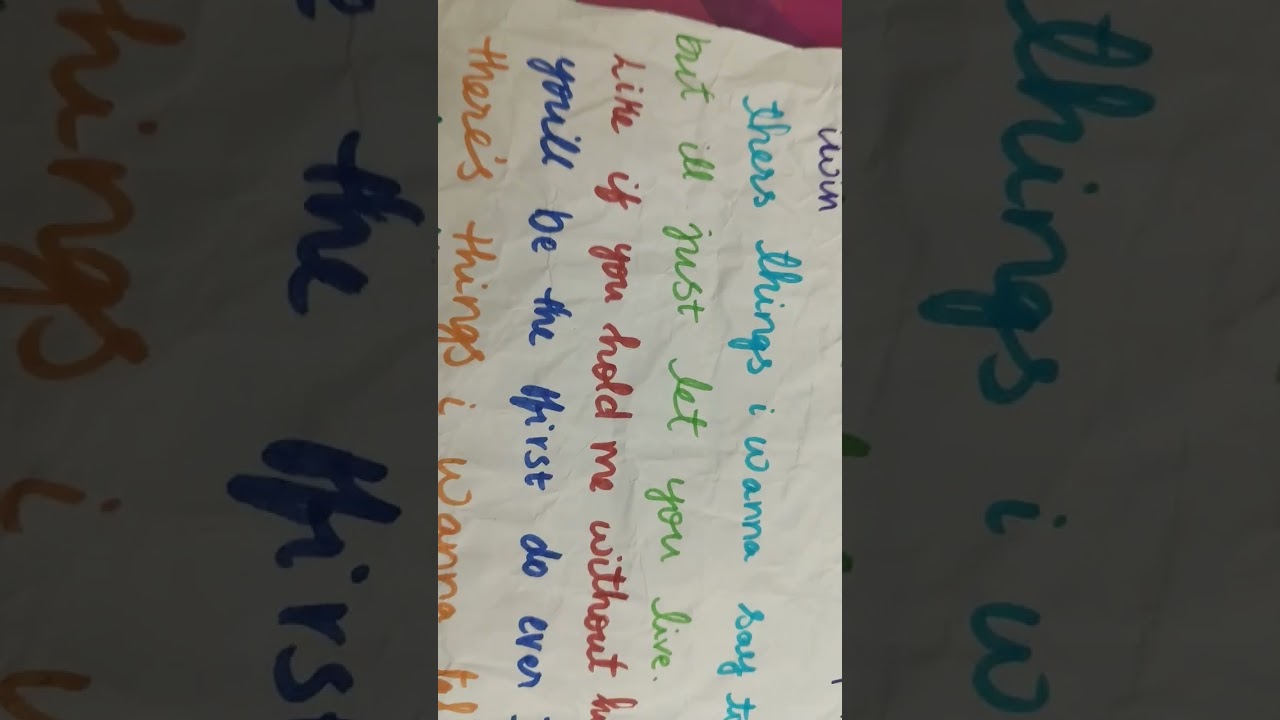 iwin
thers things i wanna say
but ill just let you live.
Like if you hold me without
you'll be the first do ever
there's things i wanna